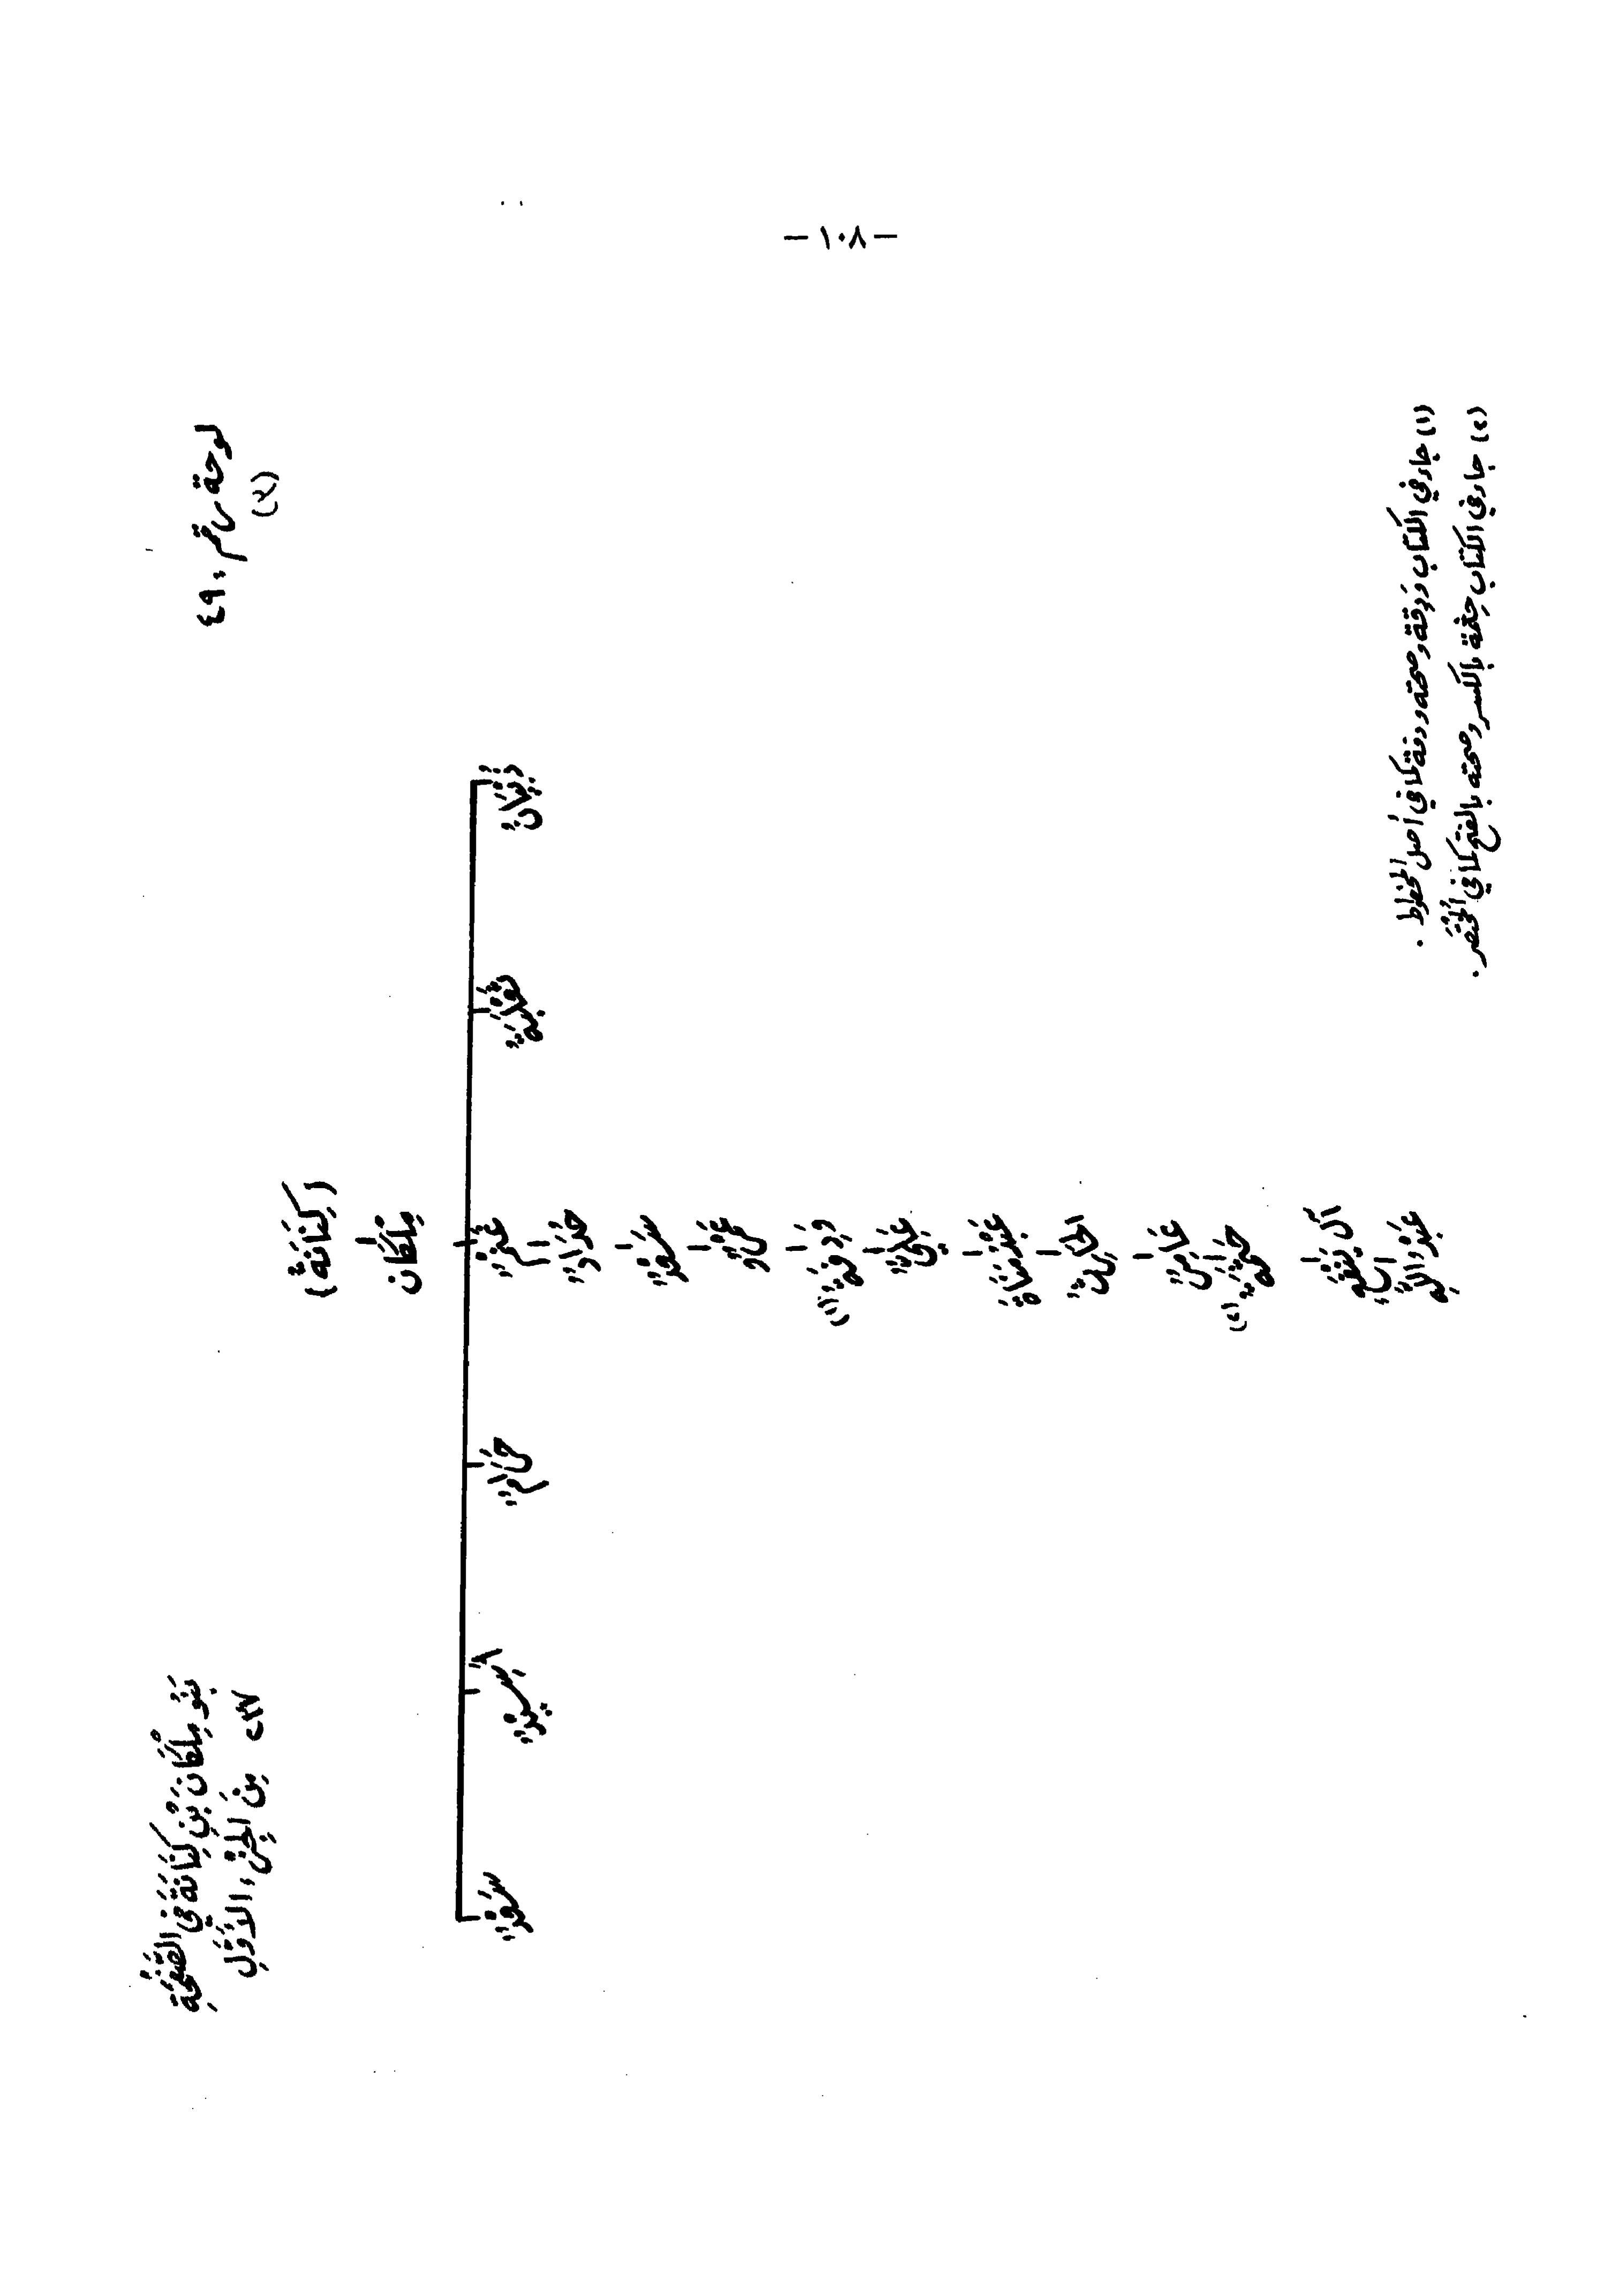 - ١٠٨ -
لوحة رقم: ٤٩
(٢)
بَنُو مِلْكَانَ بْنِ كِنَانَةَ فِي الصَّفْحَةِ
٢٣٧ مِنَ الجُزْءِ الأَوَّلِ
(كِنَانَةُ)
مِلْكَان
ذُبْيَانُ ثَعْلَبَةُ غَنْمٌ حَرَامٌ أُسَيْدٌ سَعْدٌ
سَعْدٌ
عَمْرٌو
وَدِفَةُ (١)
عَدِيٌّ
عَبْدُ مَنَاةَ
الحَارِثُ
عَامِرٌ
حَقْمَةُ (٢)
آل
أَبِي
عَبْدِ اللَّهِ
(١) جاء في الكتاب ودقة وصحته ودفة كما في أصل المخطوط.
(٢) جاء في الكتاب حِقْمة بالكسر وصحته بالفتح كما في المُخْتَصَر.